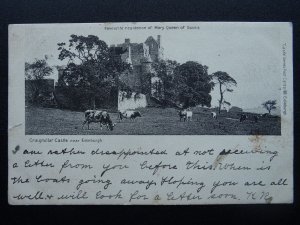 Favourite residence of Mary Queen of Scots.
Craigmillar Castle near Edinburgh
I am rather disappointed at not receiving
a letter from you before this. When is
the boats going away. Hoping you are all
well & will look for a letter soon.